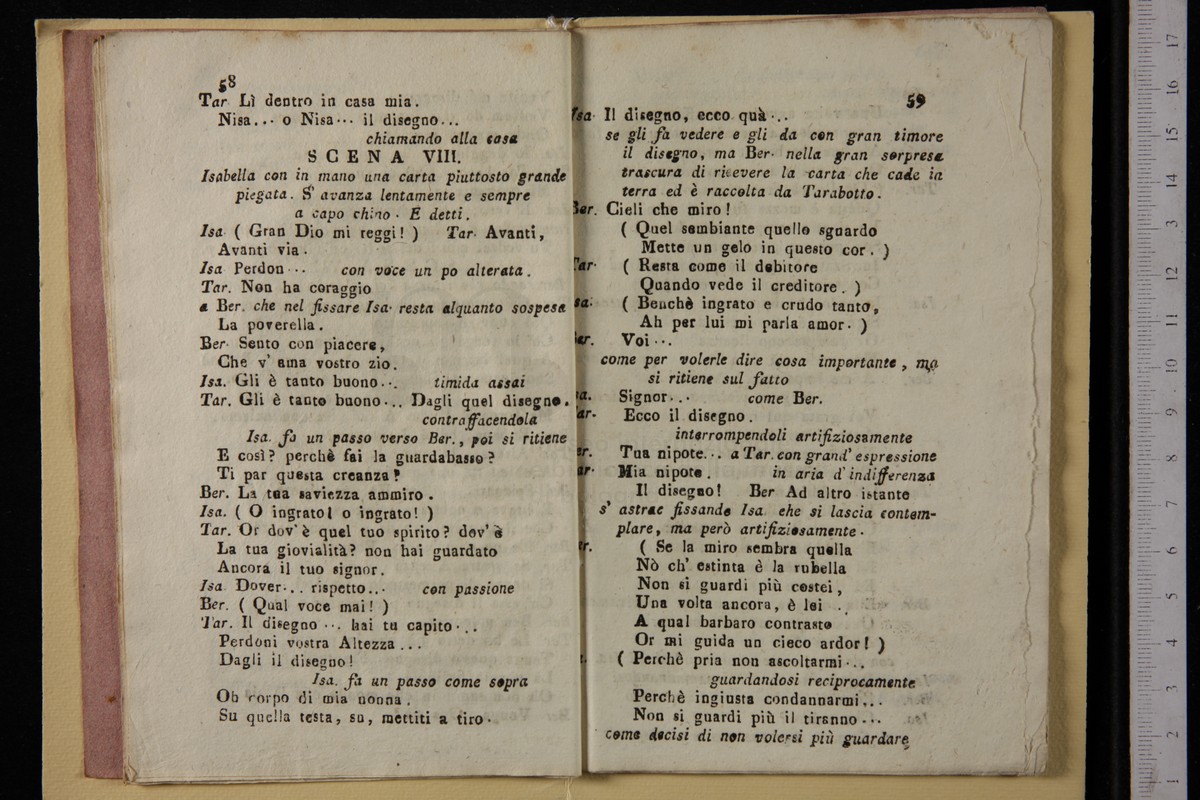 58
Tar Lì dentro in casa mia.
Nisa... o Nisa... il disegno...
chiamando alla casa
SCENA VIII.
Isabella con in mano una carta piuttosto grande
piegata. S' avanza lentamente e sempre
a capo chino. E detti.
Isa ( Gran Dio mi reggi! ) Tar. Avanti,
Avanti via.
Isa Perdon... con voce un po alterata.
Tar. Non ha coraggio
a Ber. che nel fissare Isa. resta alquanto sospesa
La poverella.
Ber. Sento con piacere,
Che v' ama vostro zio.
Isa. Gli è tanto buono... timida assai
Tar. Gli è tanto buono... Dagli quel disegno.
contraffacendola
Isa. fa un passo verso Ber., poi si ritiene
E così? perchè fai la guardabasso?
Ti par questa creanza?
Ber. La tua saviezza ammiro.
Isa. ( O ingrato! o ingrato! )
Tar. Or dov' è quel tuo spirito? dov' è
La tua giovialità? non hai guardato
Ancora il tuo signor.
Isa Dover... rispetto... con passione
Ber. ( Qual voce mai! )
Tar. Il disegno... hai tu capito...
Perdoni vostra Altezza...
Dagli il disegno!
Isa. fa un passo come sopra
Oh corpo di mia nonna.
Su quella testa, su, mettiti a tiro.
59
Isa. Il disegno, ecco quà...
se gli fa vedere e gli da con gran timore
il disegno, ma Ber. nella gran sorpresa
trascura di ricevere la carta che cade in
terra ed è raccolta da Tarabotto.
Ber. Cieli che miro!
( Quel sembiante quello sguardo
Mette un gelo in questo cor. )
Tar. ( Resta come il debitore
Quando vede il creditore. )
sa. ( Benchè ingrato e crudo tanto,
Ah per lui mi parla amor. )
er. Voi...
come per volerle dire cosa importante, ma
si ritiene sul fatto
sa. Signor... come Ber.
ar. Ecco il disegno.
interrompendoli artifiziosamente
er. Tua nipote... a Tar. con grand' espressione
ar. Mia nipote. in aria d' indifferenza
Il disegno! Ber Ad altro istante
s' astrae fissando Isa. che si lascia contem-
plare, ma però artifiziosamente.
er. ( Se la miro sembra quella
Nò ch' estinta è la rubella
Non si guardi più costei,
Una volta ancora, è lei..
A qual barbaro contrasto
Or mi guida un cieco ardor! )
( Perchè pria non ascoltarmi...
guardandosi reciprocamente
Perchè ingiusta condannarmi...
Non si guardi più il tiranno...
come decisi di non volersi più guardare
17
16
15
14
13
12
11
10
9
8
7
6
5
4
3
2
1